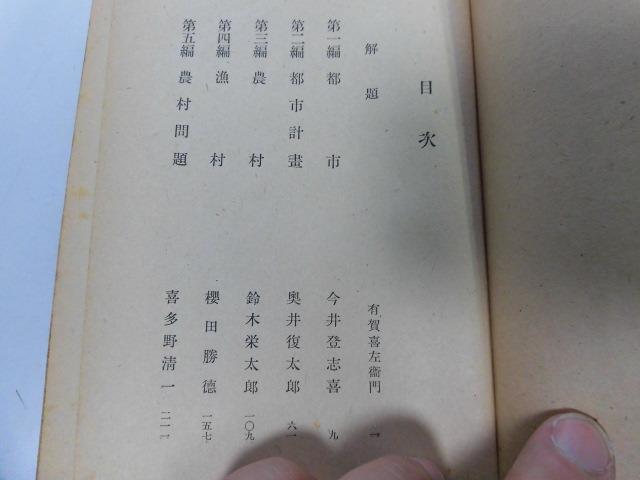 目次
解題 有賀喜左衞門 一
第一編 都市 今井登志喜 九
第二編 都市計畫 奥井復太郎 六一
第三編 農村 鈴木栄太郎 一〇九
第四編 漁村 櫻田勝德 一五七
第五編 農村問題 喜多野清一 二一一